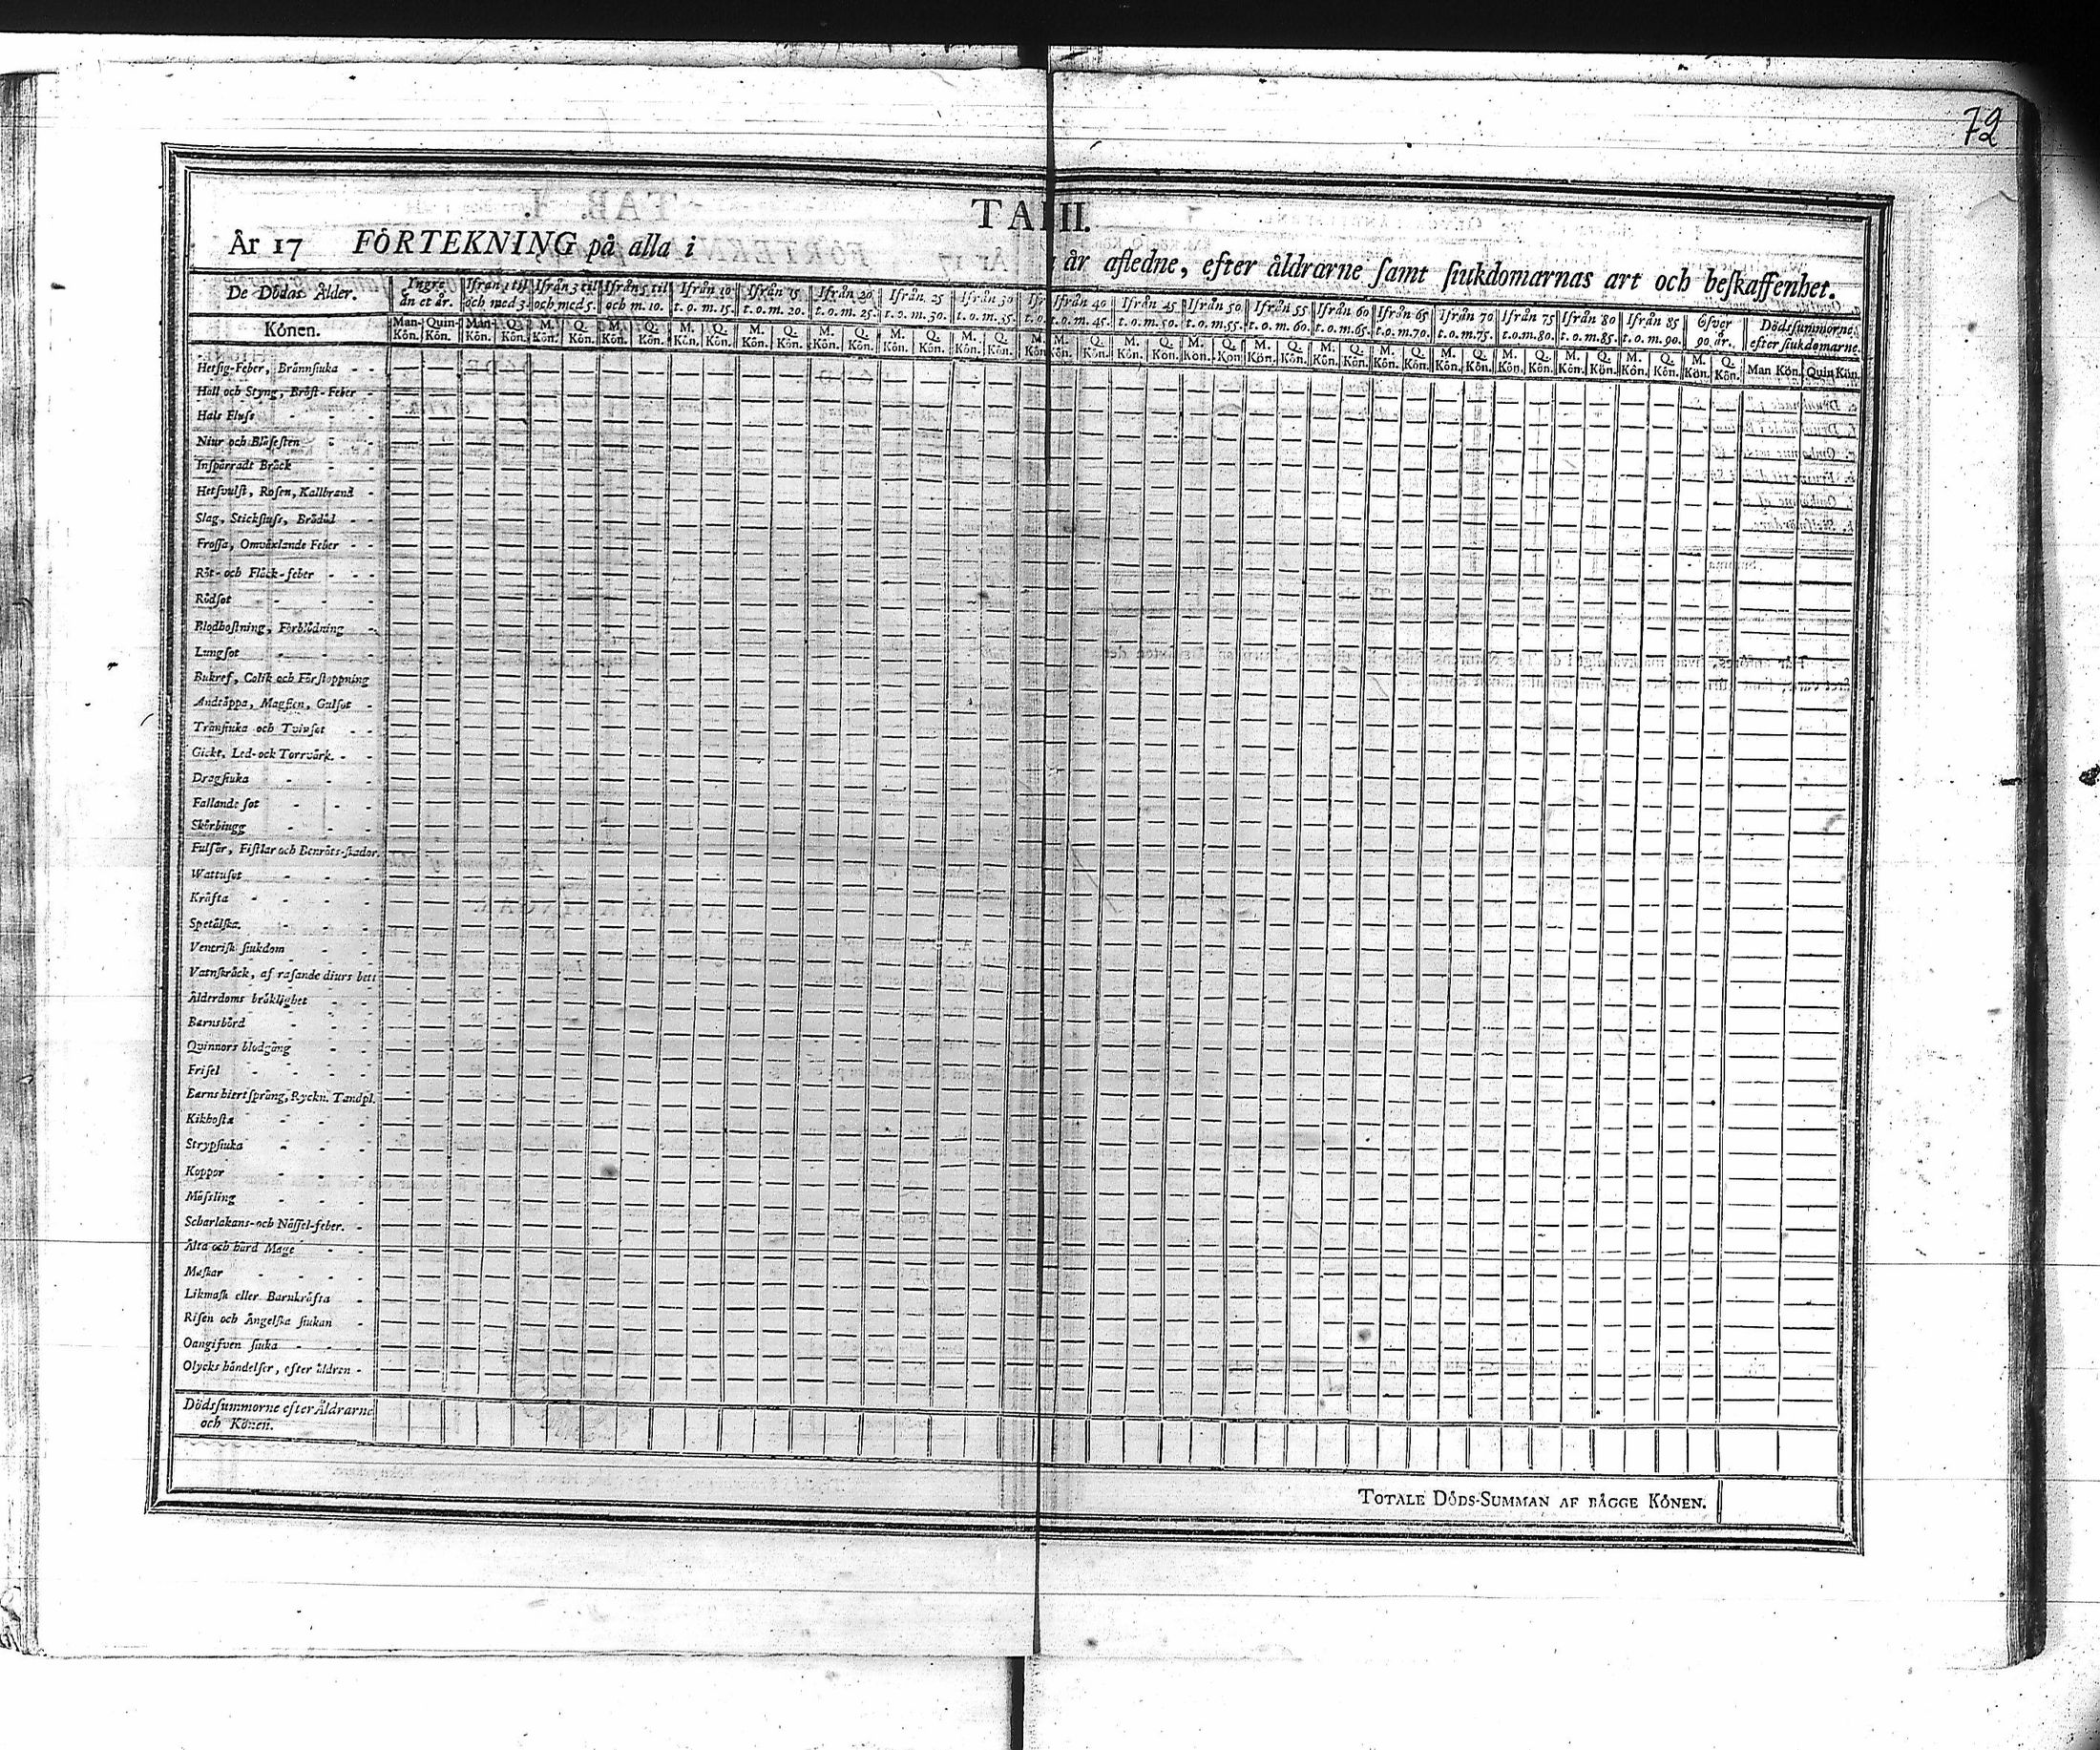 72
TAB II.
År 17 FÖRTEKNING på alla i år afledne, efter åldrarne samt siukdomarnas art och beskaffenhet.
De Dödas Ålder. Ingre än et år. Ifrån 1 til och med 3. Ifrån 3 til och med 5. Ifrån 5 til och m. 10. Ifrån 10 t. o. m. 15. Ifrån 15 t. o. m. 20. Ifrån 20 t. o. m. 25. Ifrån 25 t. o. m. 30. Ifrån 30 t. o. m. 35. Ifrån 40 t. o. m. 45. Ifrån 45 t. o. m. 50. Ifrån 50 t. o. m. 55. Ifrån 55 t. o. m. 60. Ifrån 60 t. o. m. 65. Ifrån 65 t. o. m. 70. Ifrån 70 t. o. m. 75. Ifrån 75 t. o. m. 80. Ifrån 80 t. o. m. 85. Ifrån 85 t. o. m. 90. Öfver 90. år. Dödssummorne efter siukdomarne
Könen. Man-Kön. Quin-Kön. Man-Kön. Q. Kön. M. Kön. Q. Kön. M. Kön. Q. Kön. M. Kön. Q. Kön. M. Kön. Q. Kön. M. Kön. Q. Kön. M. Kön. Q. Kön. M. Kön. Q. Kön. M. Kön. M. Kön. Q. Kön. M. Kön. Q. Kön. M. Kön. Q. Kön. M. Kön. Q. Kön. M. Kön. Q. Kön. M. Kön. Q. Kön. M. Kön. Q. Kön. M. Kön. Q. Kön. M. Kön. Q. Kön. M. Kön. Q. Kön. M. Kön. Q. Kön. Man Kön. Quin Kön.
Hetsig-Feber, Brännsiuka
Håll och Styng, Bröst-Feber
Hals Fluss
Niur och Blåsesten
Inspärradt Bråck
Hetsvulst, Rosen, Kallbrand
Slag, Stickfluss, Brådöd
Frossa, Omväxlande Feber
Röt- och Fläck-feber
Rödsot
Blodhostning, Förblödning
Lungsot
Bukref, Colik och Förstoppning
Andtäppa, Magsen, Gulsot
Trånsiuka och Tvinsot
Gickt, Led- ock Torrvärk.
Dragsiuka
Fallande sot
Skörbiugg
Fulsår, Fistlar och Benröts-skador.
Wattusot
Kräfta
Spetälska.
Venerisk siukdom
Vatnskräck, af rasande diurs bett
Ålderdoms bräklighet
Barnsbörd
Quinnors blodgång
Frisel
Barns hiertsprång, Ryckn. Tandpl.
Kikhosta
Strypsiuka
Koppor
Mässling
Scharlakans- och Nässel-feber.
Älta och hård Mage
Maskar
Likmask eller Barnkräfta
Risen och Ångelska siukan
Oangifven siuka
Olycks händelser, efter åldren
Dödssummorne efter Åldrarne
och Könen.
TOTALE DÖDS-SUMMAN AF BÄGGE KÖNEN.